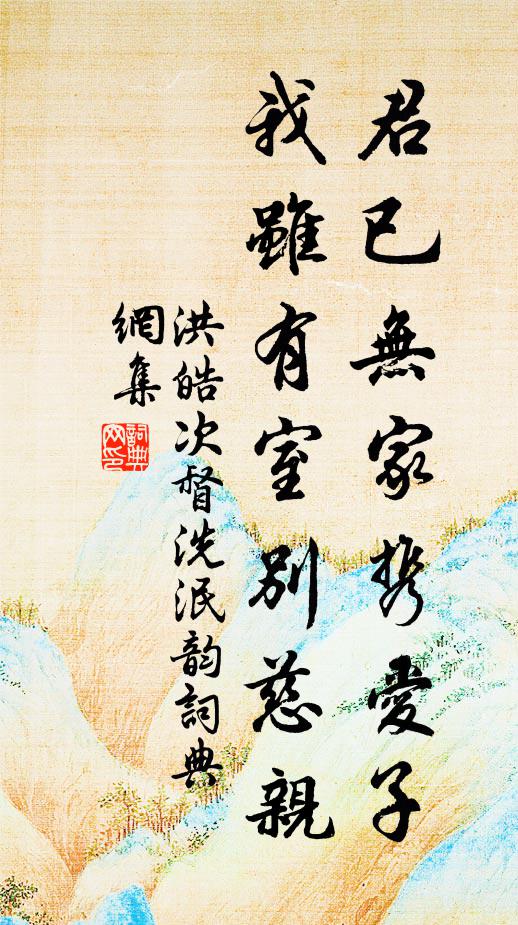 君已無家携愛子
我雖有室別慈親
洪皓次督洗泯韵詞典
網集
詞典
网印